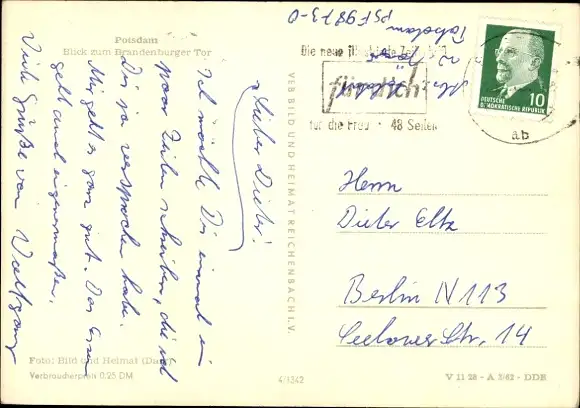 Potsdam
Blick zum Brandenburger Tor
Lieber Dieter!
Ich möchte Dir einmal ein
paar Zeilen schreiben, die ich
Dir ja versprochen habe.
Mir geht es ganz gut. Das Essen
geht auch eigenermaßen.
Viele Grüße von Wolfgang
Foto: Bild und Heimat
Verbraucherpreis 0,25 DM
4/1342
VEB BILD UND HEIMAT REICHENBACH I. V.
Potsdam
PSF 9873-0
Die neue
für dich
für die Frau · 48 Seiten
DEUTSCHE
DEMOKRATISCHE REPUBLIK
10
ab
Herrn
Dieter Eltz
Berlin N 113
Seelower Str. 14
V 11 28 - A 2/62 - DDR